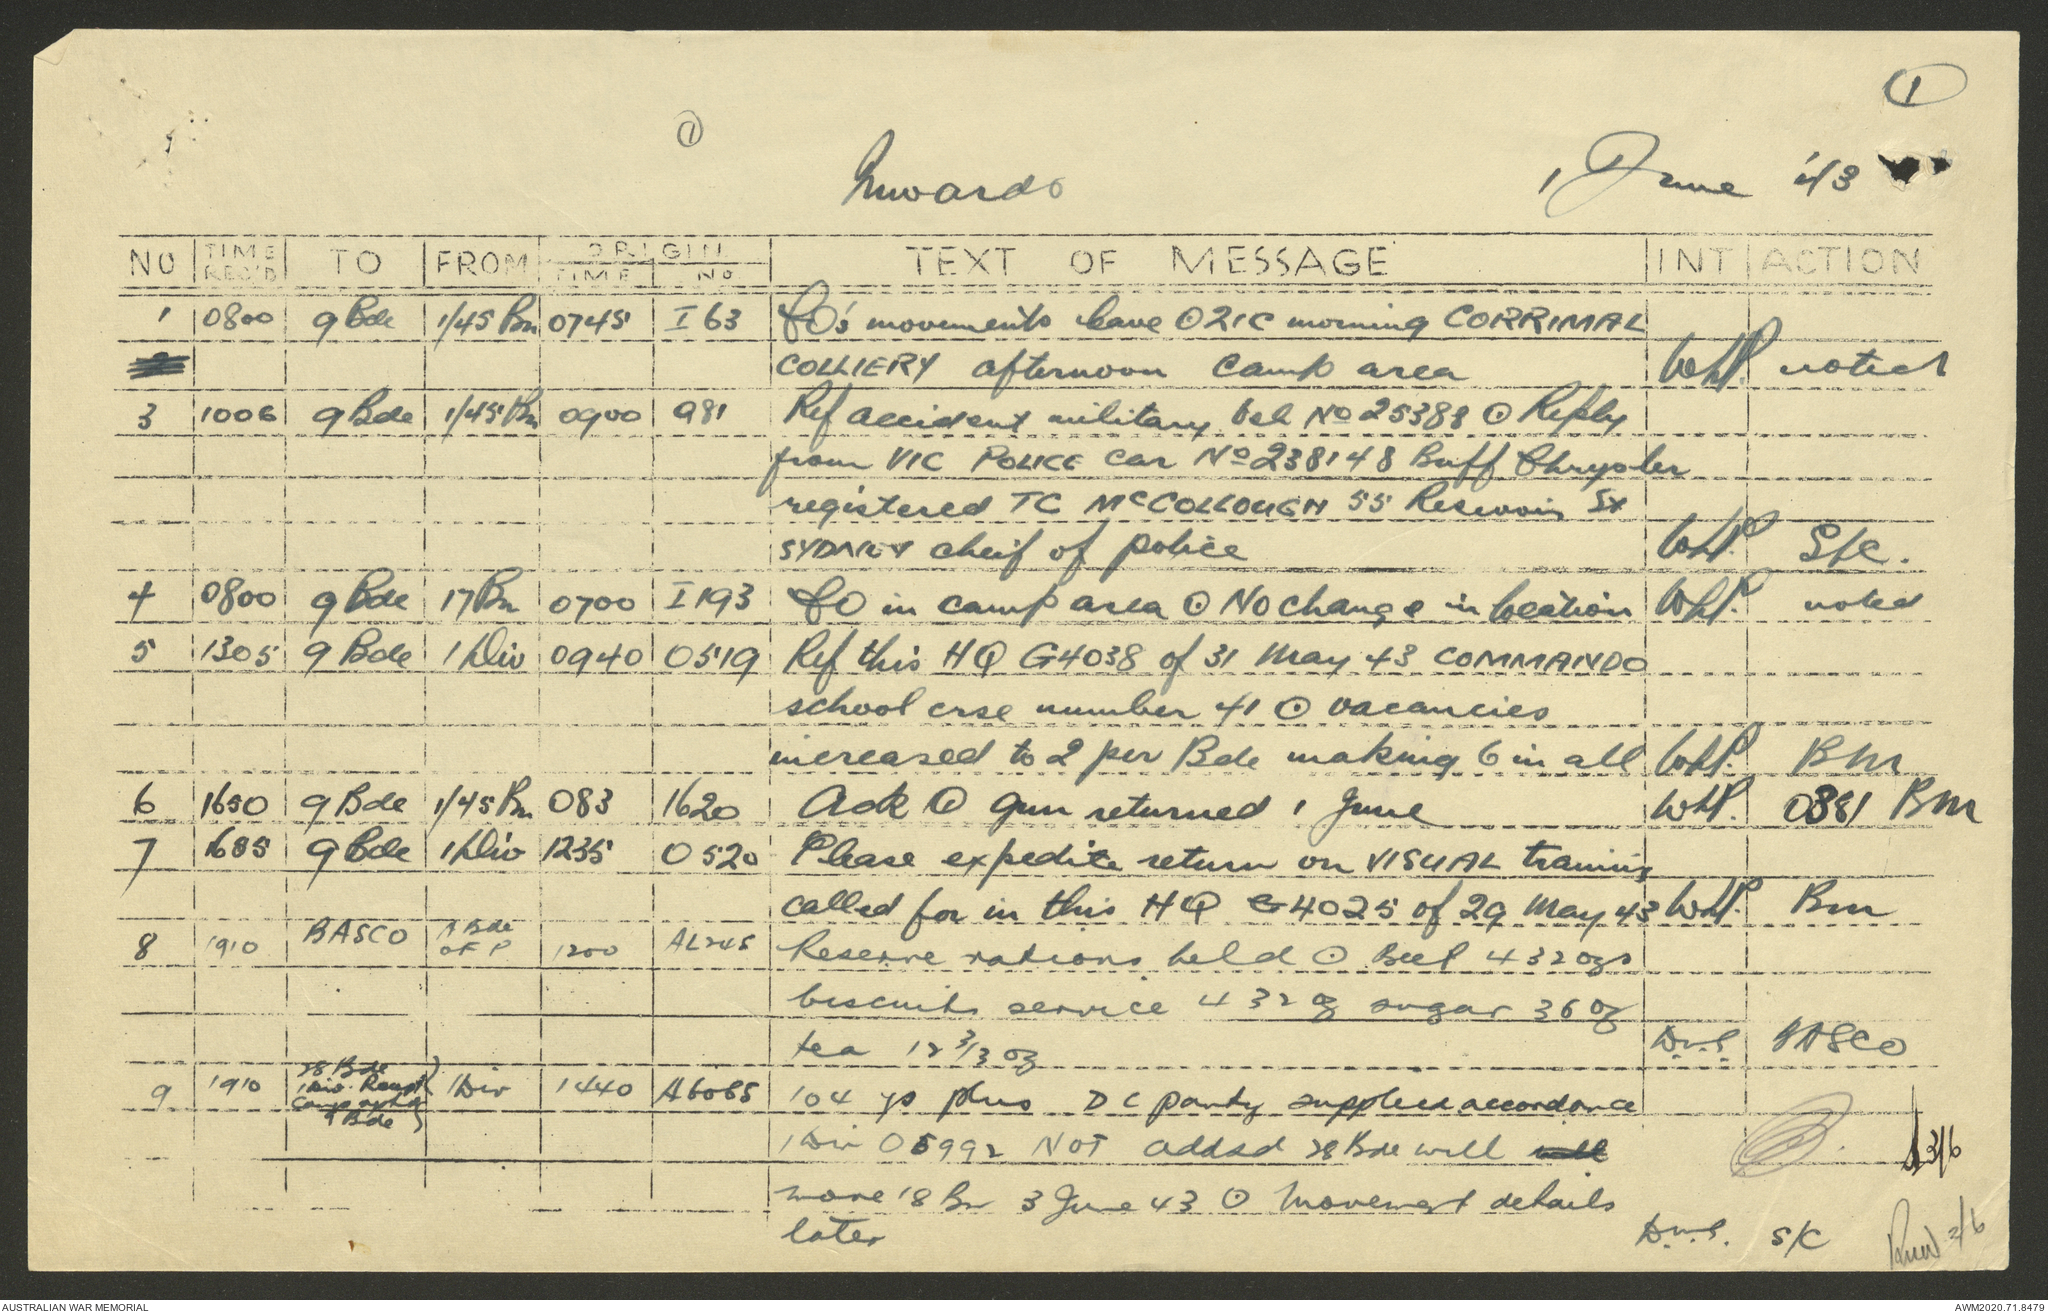 1
1
Inwards
1 June '43
NO TIME REC'D TO FROM ORIGIN TIME No TEXT OF MESSAGE INT ACTION
1 0800 9 Bde 1/45 Bn 0745 I 63 CO's movements leave ⊙ 2IC morning CORRIMAL
COLLIERY afternoon camp area WHP. noted
3 1006 9 Bde 1/45 Bn 0900 981 Ref accident military veh No 25388 ⊙ Reply
from VIC POLICE car No 238148 Buff Chrysler
registered TC McCOLLOUGH 55 Reservoir St
SYDNEY cheif of police WHP. S/C.
4 0800 9 Bde 17 Bn 0700 I 193 CO in camp area ⊙ No change in location WHP. noted
5 1305 9 Bde 1 Div 0940 O519 Ref this HQ G4038 of 31 May 43 COMMANDO
school crse number 41 ⊙ vacancies
increased to 2 per Bde making 6 in all WHP. BM
6 1650 9 Bde 1/45 Bn 083 1620 Ack Q gun returned 1 June WHP. 0881 BM
7 1685 9 Bde 1 Div 1235 O520 Please expedite return on VISUAL training
called for in this HQ G4025 of 29 May 43 WHP. BM
8 1910 BASCO Bde OF P 1200 AL245 Reserve rations held ⊙ Beef 432 ozs
biscuits service 432 oz sugar 36 oz
tea 12 3/13 oz BASCO
28 Bde
9 1910 1 Div. Recept Camp 9 Bde 1 Div 1440 A6065 104 ys plus DC party supplied accordance
1 Div O5992 NOT added 28 Bde will
3/6
move 18 Bn 3 June 43 ⊙ Movement details
later S/C 2/6
AUSTRALIAN WAR MEMORIAL
AWM2020.71.8479